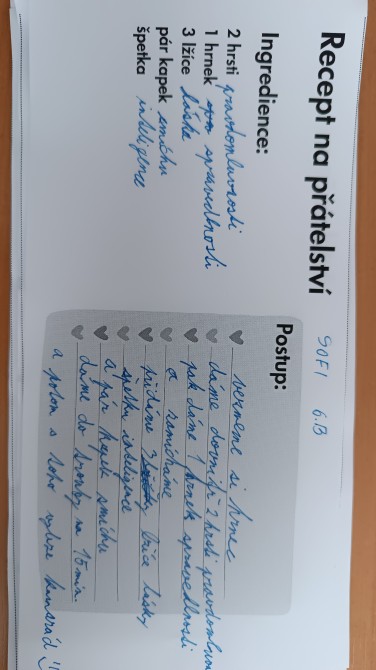 Recept na přátelství
SOFI 6.B
Ingredience:
2 hrsti pravdomluvnosti
1 hrnek spravedlnosti
3 lžíce lásky
pár kapek smíchu
špetka inteligence
Postup:
vezmeme si hrnec
dáme dovnitř 2 hrsti
pak dáme 1 hrnek spravedlnosti
a zamícháme
přidáme 3 lžíce lásky
špetku inteligence
a pár kapek smíchu
dáme do trouby na 15 min.
a potom s toho vyleze kamarád